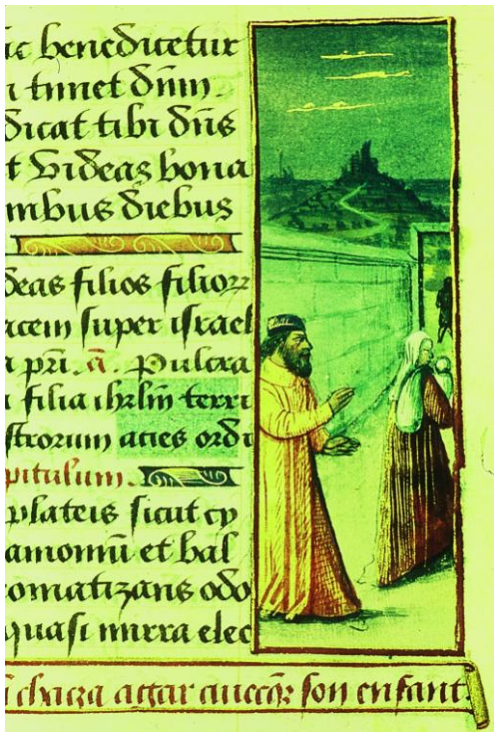 ic benedicetur
i timet dñm.
dicat tibi dñs
t videas bona
mbus diebus
deas filios filioꝝ
acem super israel
a pri. a. Pulcra
filia ihrlm̄ terri
strorum acies ordi
pitulum.
plateis sicut cy
amomū et bal
omatizans odo
quasi mirra elec
chaca agar avecqz son enfant.